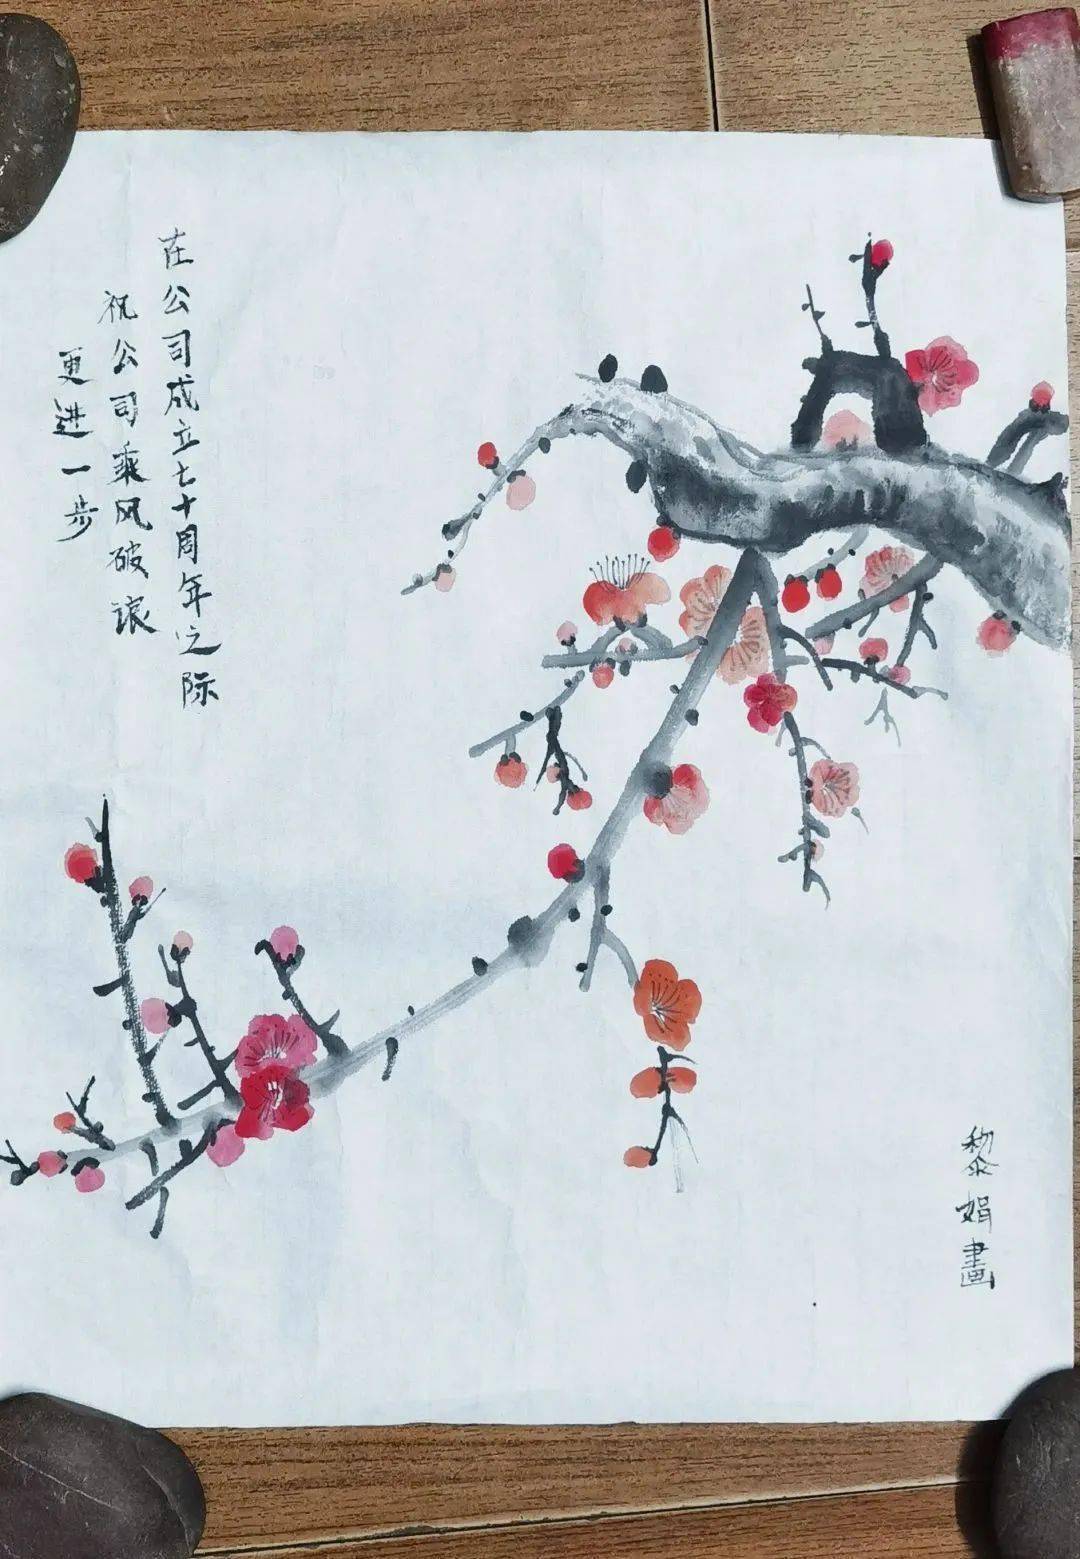 在公司成立七十周年之际
祝公司乘风破浪
更进一步
黎娟畫